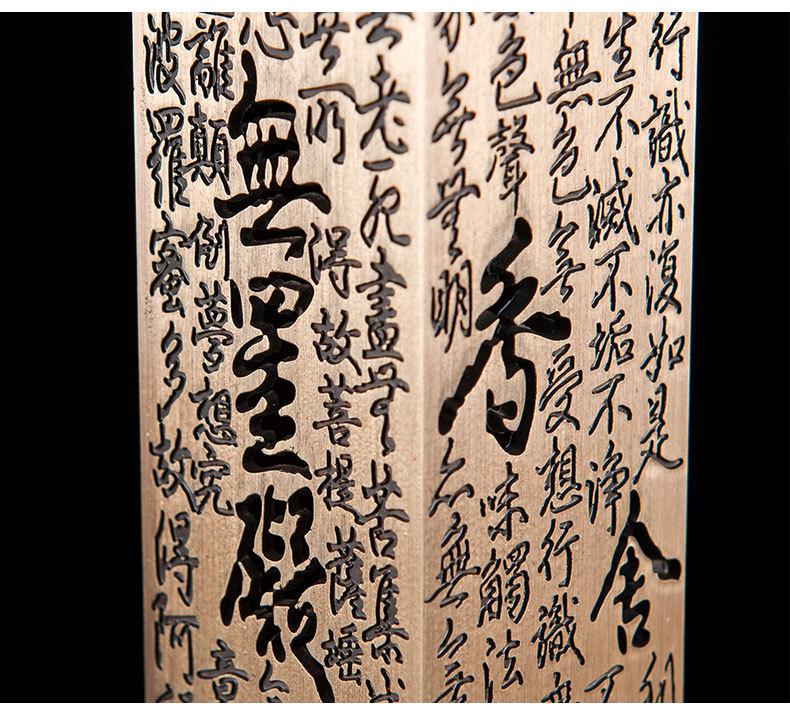 行識亦復如是舍利
生不滅不垢不淨不
無色無受想行識無
色聲香味觸法
無無明亦無無
無老死盡無苦集滅
無所得故菩提薩埵
心無罣礙無
離顛倒夢想究竟
波羅蜜多故得阿